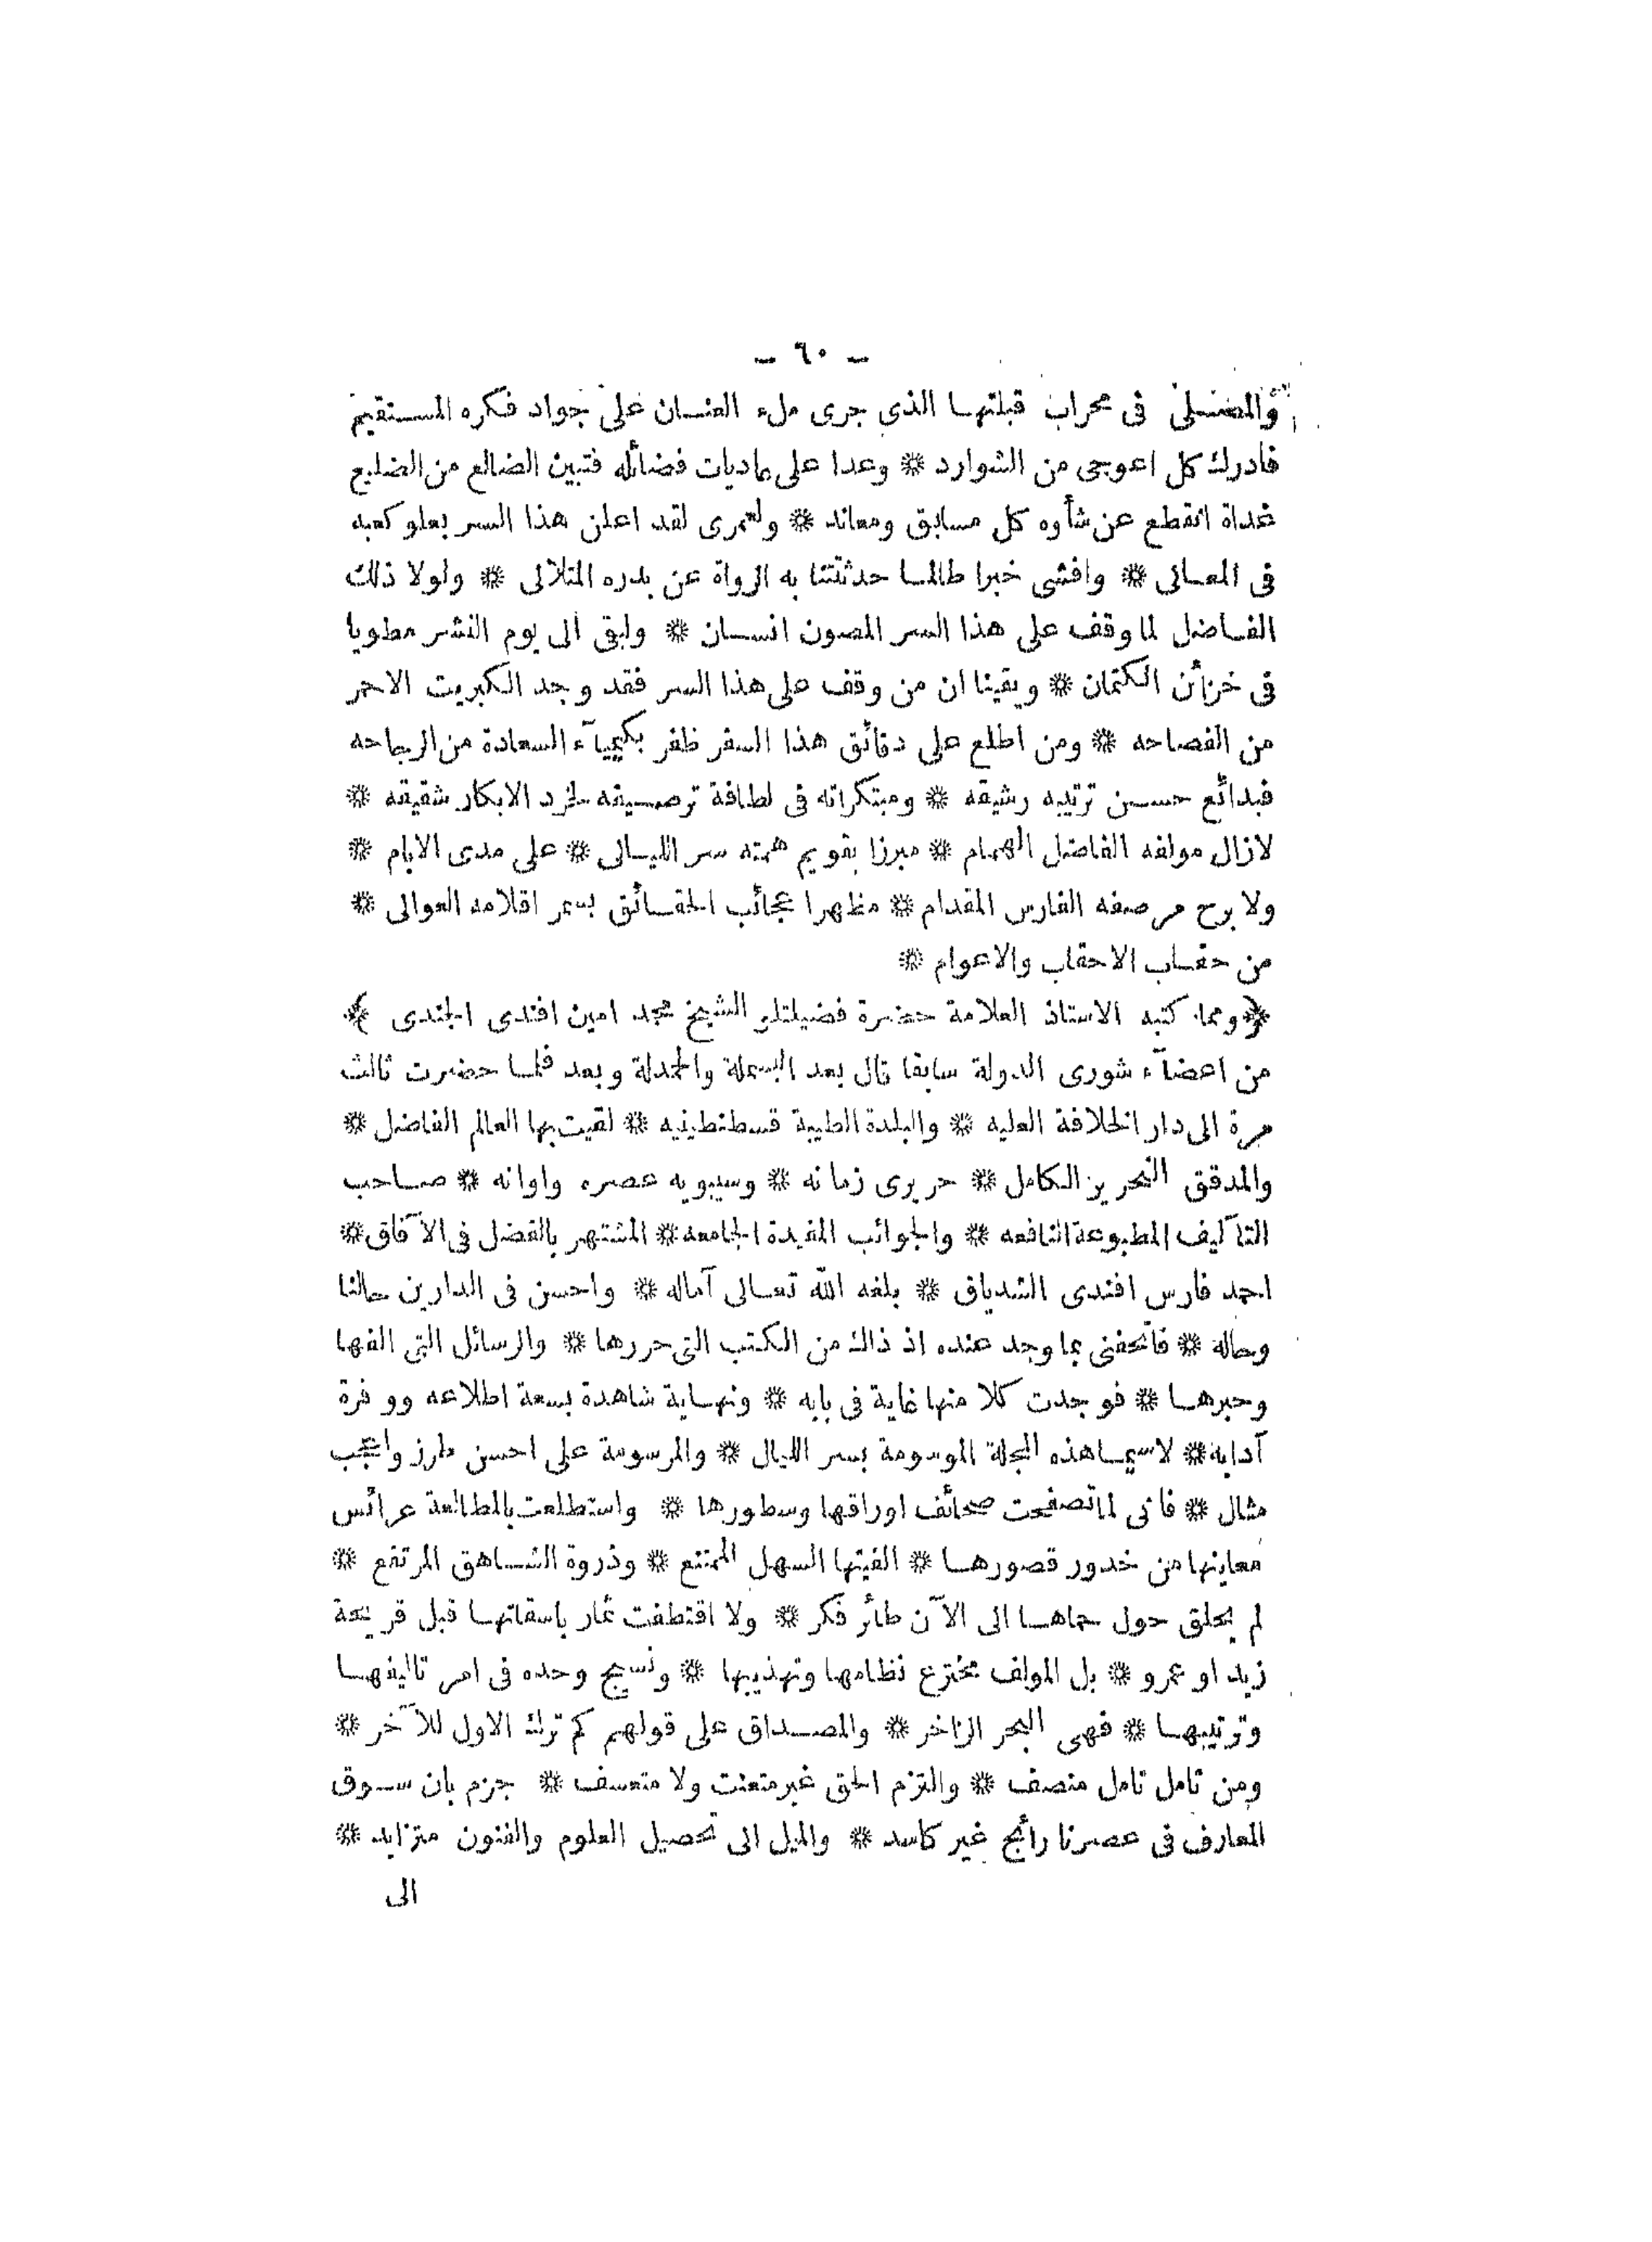 - ٦٠ -
والمصلى فى محراب قبلتها الذى جرى ملء العنان على جواد فكره المستقيم
فادرك كل اعوجى من الشوارد ❊ وعدا على عاديات فضائله فتبين الضالع من الضليع
غداة انقطع عن شأوه كل مسابق ومعاند ❊ ولعمرى لقد اعلن هذا السر بعلو كعبه
فى المعالى ❊ وافشى خبرا طالما حدثتنا به الرواة عن بدره المتلالى ❊ ولولا ذلك
الفاضل لما وقف على هذا السر المصون انسان ❊ ولبق الى يوم النشر مطويا
فى خزائن الكتمان ❊ ويقينا ان من وقف على هذا السر فقد وجد الكبريت الاحمر
من الفصاحه ❊ ومن اطلع على دقائق هذا السفر ظفر بكيمياء السعادة من الرجاحه
فبدائع حسن ترتيبه رشيقه ❊ ومبتكراته فى لطافة ترصيفه لخرد الابكار شقيقه ❊
لازال مولفه الفاضل الهمام ❊ مبرزا بقويم همته سر الليالى ❊ على مدى الايام ❊
ولا برح مرصفه الفارس المقدام ❊ مظهرا عجائب الحقائق بسمر اقلامه العوالى ❊
من حقاب الاحقاب والاعوام ❊
﴿ ومما كتبه الاستاذ العلامة حضرة فضيلتلو الشيخ محمد امين افندى الجندى ﴾
من اعضآء شورى الدولة سابقا قال بعد البسملة والحمدلة وبعد فلما حضرت ثالث
مرة الى دار الخلافة العليه ❊ والبلدة الطيبة قسطنطينيه ❊ لقيت بها العالم الفاضل ❊
والمدقق النحرير الكامل ❊ حريرى زمانه ❊ وسيبويه عصره واوانه ❊ صاحب
التآليف المطبوعة النافعه ❊ والجوائب المفيدة الجامعه ❊ المشتهر بالفضل فى الآفاق ❊
احمد فارس افندى الشدياق ❊ بلغه الله تعالى آماله ❊ واحسن فى الدارين حالنا
وحاله ❊ فاتحفنى بما وجد عنده اذ ذاك من الكتب التى حررها ❊ والرسائل التى الفها
وحبرها ❊ فوجدت كلا منها غاية فى بابه ❊ ونهاية شاهدة بسعة اطلاعه ووفرة
آدابه ❊ لاسيما هذه المجلة الموسومة بسر الليال ❊ والمرسومة على احسن طرز واعجب
مثال ❊ فانى لما تصفحت صحائف اوراقها وسطورها ❊ واستطلعت بالمطالعة عرائس
معانيها من خدور قصورها ❊ الفيتها السهل الممتنع ❊ وذروة الشاهق المرتفع ❊
لم يحلق حول حماها الى الآن طائر فكر ❊ ولا اقتطفت ثمار باسقاتها قبل قريحة
زيد او عمرو ❊ بل المولف مخترع نظامها وتهذيبها ❊ ونسيج وحده فى امر تاليفها
وترتيبها ❊ فهى البحر الزاخر ❊ والمصداق على قولهم كم ترك الاول للآخر ❊
ومن تامل تامل منصف ❊ والتزم الحق غير متعنت ولا متعسف ❊ جزم بان سوق
المعارف فى عصرنا رائج غير كاسد ❊ والميل الى تحصيل العلوم والفنون متزايد ❊
الى